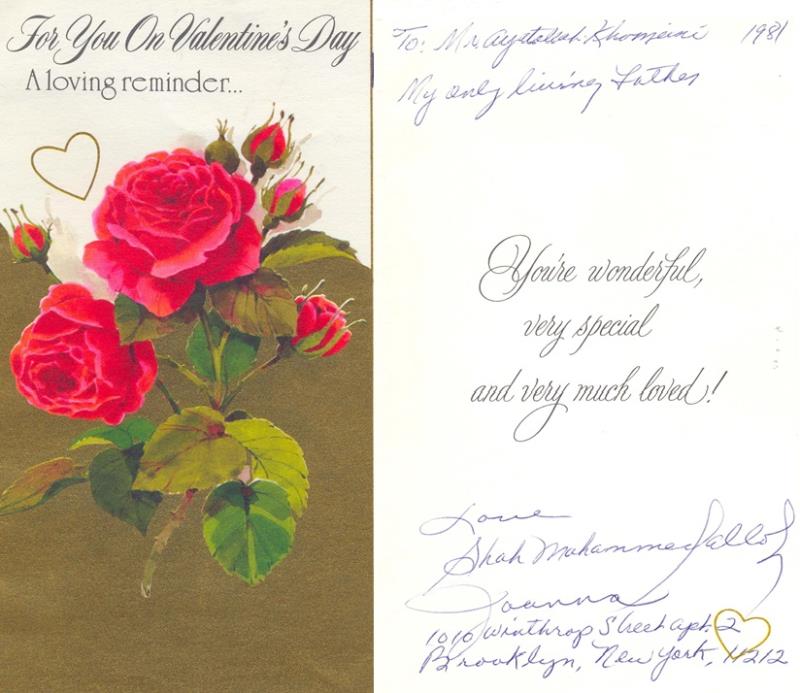 For You On Valentine's Day
A loving reminder...
To: Mr Ayatollah Khomeini 1981
My only living Father
You're wonderful,
very special
and very much loved!
Love
Shah Mohammed
Joanna
1010 Winthrop Street apt. 2
Brooklyn, New York, 11212